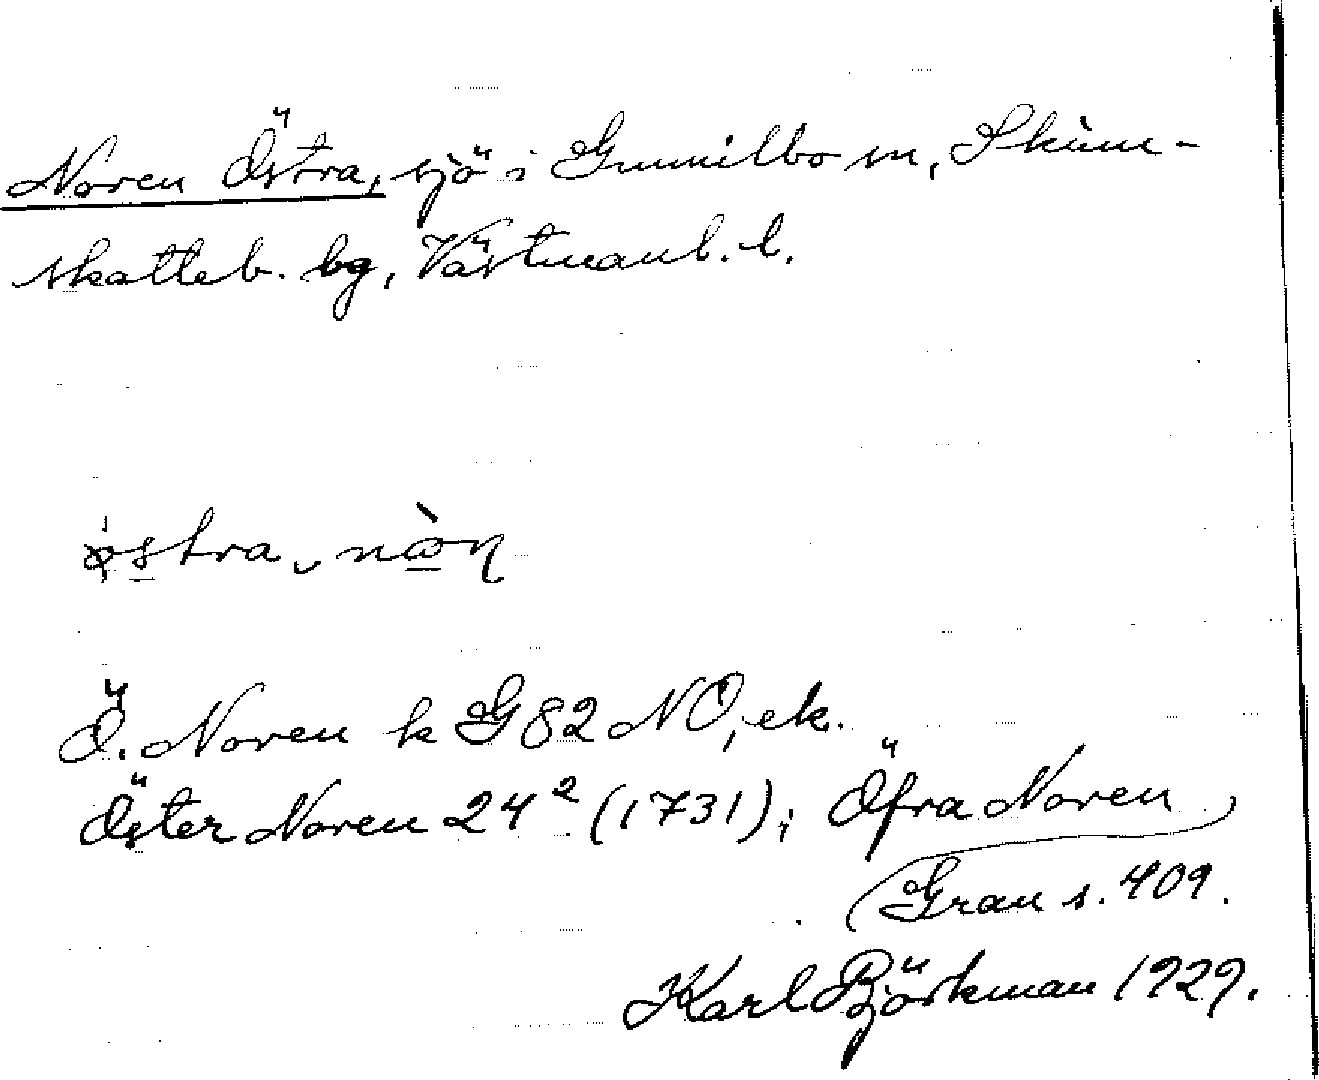 Noren Östra, sjö i Gunnilbo sn, Skinn-
skatteb. bg, Västmanl. l.
östra nòn
Ö. Noren k G 82 NO, ek.
Öster Noren 24² (1731); Öfra Noren,
Grau s. 409.
Karl Björkman 1929.